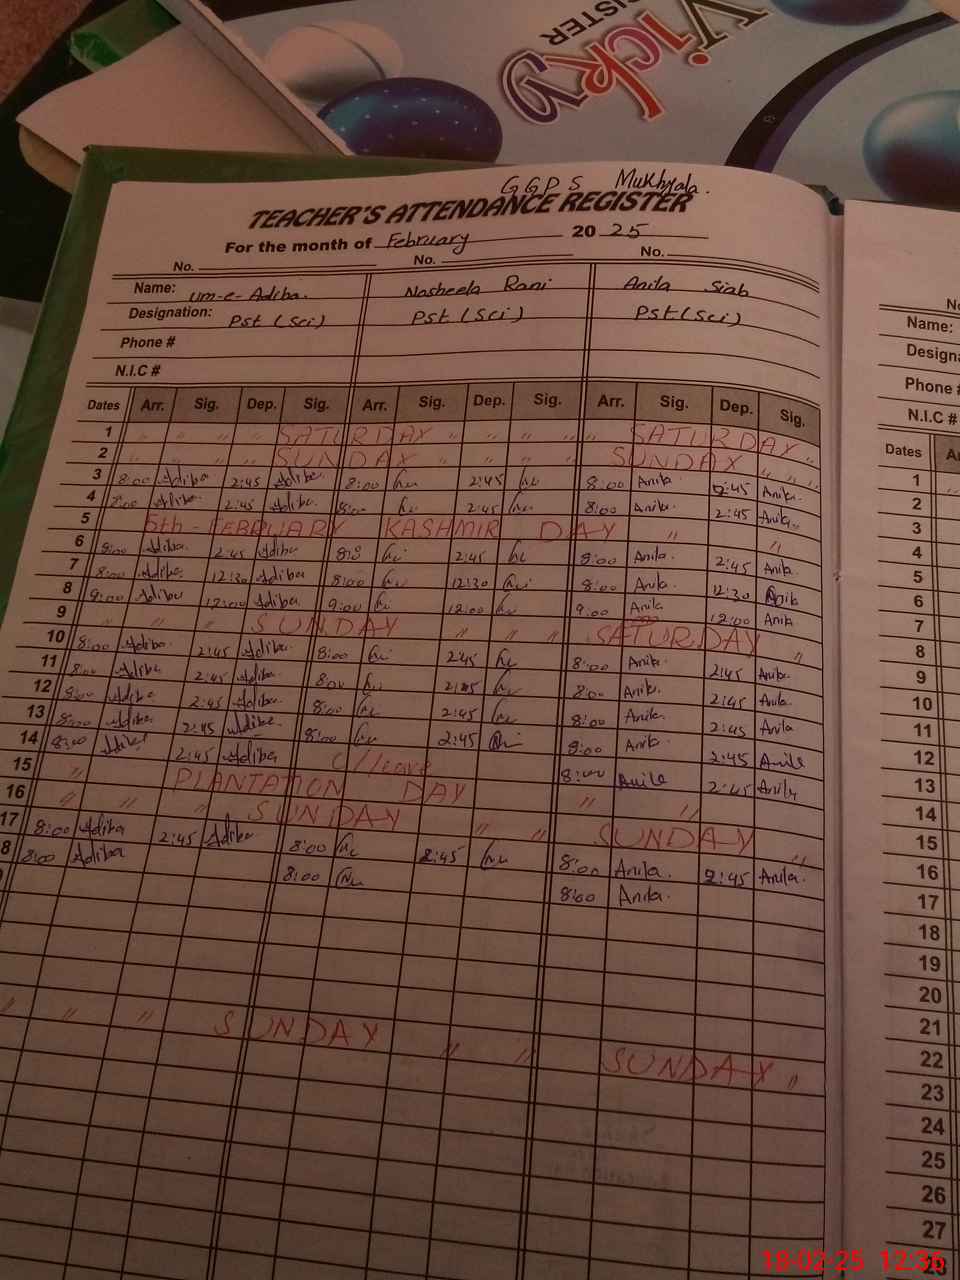 Vicky
REGISTER
GGPS Mukhyala.
TEACHER'S ATTENDANCE REGISTER
For the month of February 20 25
No. No. No.
Name: Um-e-Adiba. Nasheela Rani Anila Siab
Designation: Pst (Sci) Pst (Sci) Pst (Sci)
Phone #
N.I.C #
Dates Arr. Sig. Dep. Sig. Arr. Sig. Dep. Sig. Arr. Sig. Dep. Sig.
1 " " " " SATURDAY " " " " " SATURDAY "
2 " " " " SUNDAY " " " " SUNDAY " " "
3 8:00 Adiba 2:45 Adiba. 8:00 2:45 8:00 Anila 2:45 Anila.
4 8:00 Adiba. 2:45 Adiba. 8:00 2:45 8:00 Anila. 2:45 Anila.
5 5th-FEBRUARY KASHMIR DAY " "
6 8:00 Adiba. 2:45 Adiba 2:45 8:00 Anila. 2:45 Anila.
7 8:00 Adiba. 12:30 Adiba 8:00 12:30 8:00 Anila. 12:30 Anila
8 9:00 Adiba 12:00 Adiba. 9:00 12:00 9:00 Anila 12:00 Anila
9 " " " SUNDAY " " " SATURDAY "
10 8:00 Adiba. 2:45 Adiba. 8:00 2:45 8:00 Anila. 2:45 Anila.
11 8:00 Adiba 2:45 Adiba. 8:00 2:45 8:00 Anila. 2:45 Anila.
12 8:00 Adiba 2:45 Adiba. 8:00 2:45 8:00 Anila. 2:45 Anila
13 8:00 Adiba 2:45 Adiba. 8:00 2:45 8:00 Anila. 2:45 Anila
14 8:00 Adiba 2:45 Adiba C/leave 8:00 Anila 2:45 Anila
15 " PLANTATION DAY " "
16 " " " SUNDAY " " SUNDAY "
17 8:00 Adiba 2:45 Adiba 8:00 2:45 8:00 Anila. 2:45 Anila.
8 8:00 Adiba 8:00 8:00 Anila.
" " " SUNDAY " " SUNDAY "
No
Name:
Design
Phone #
N.I.C #
Dates A
1
2
3
4
5
6
7
8
9
10
11
12
13
14
15
16
17
18
19
20
21
22
23
24
25
26
27
28
18-02-25 12:36